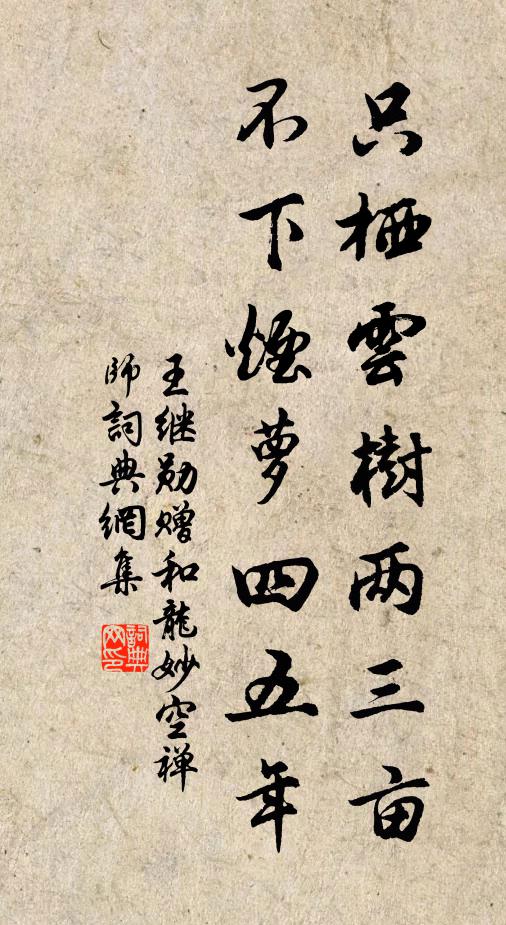 只栖雲樹两三亩
不下煙萝四五年
王继勋赠和龍妙空禅
師詞典網集
詞典网印